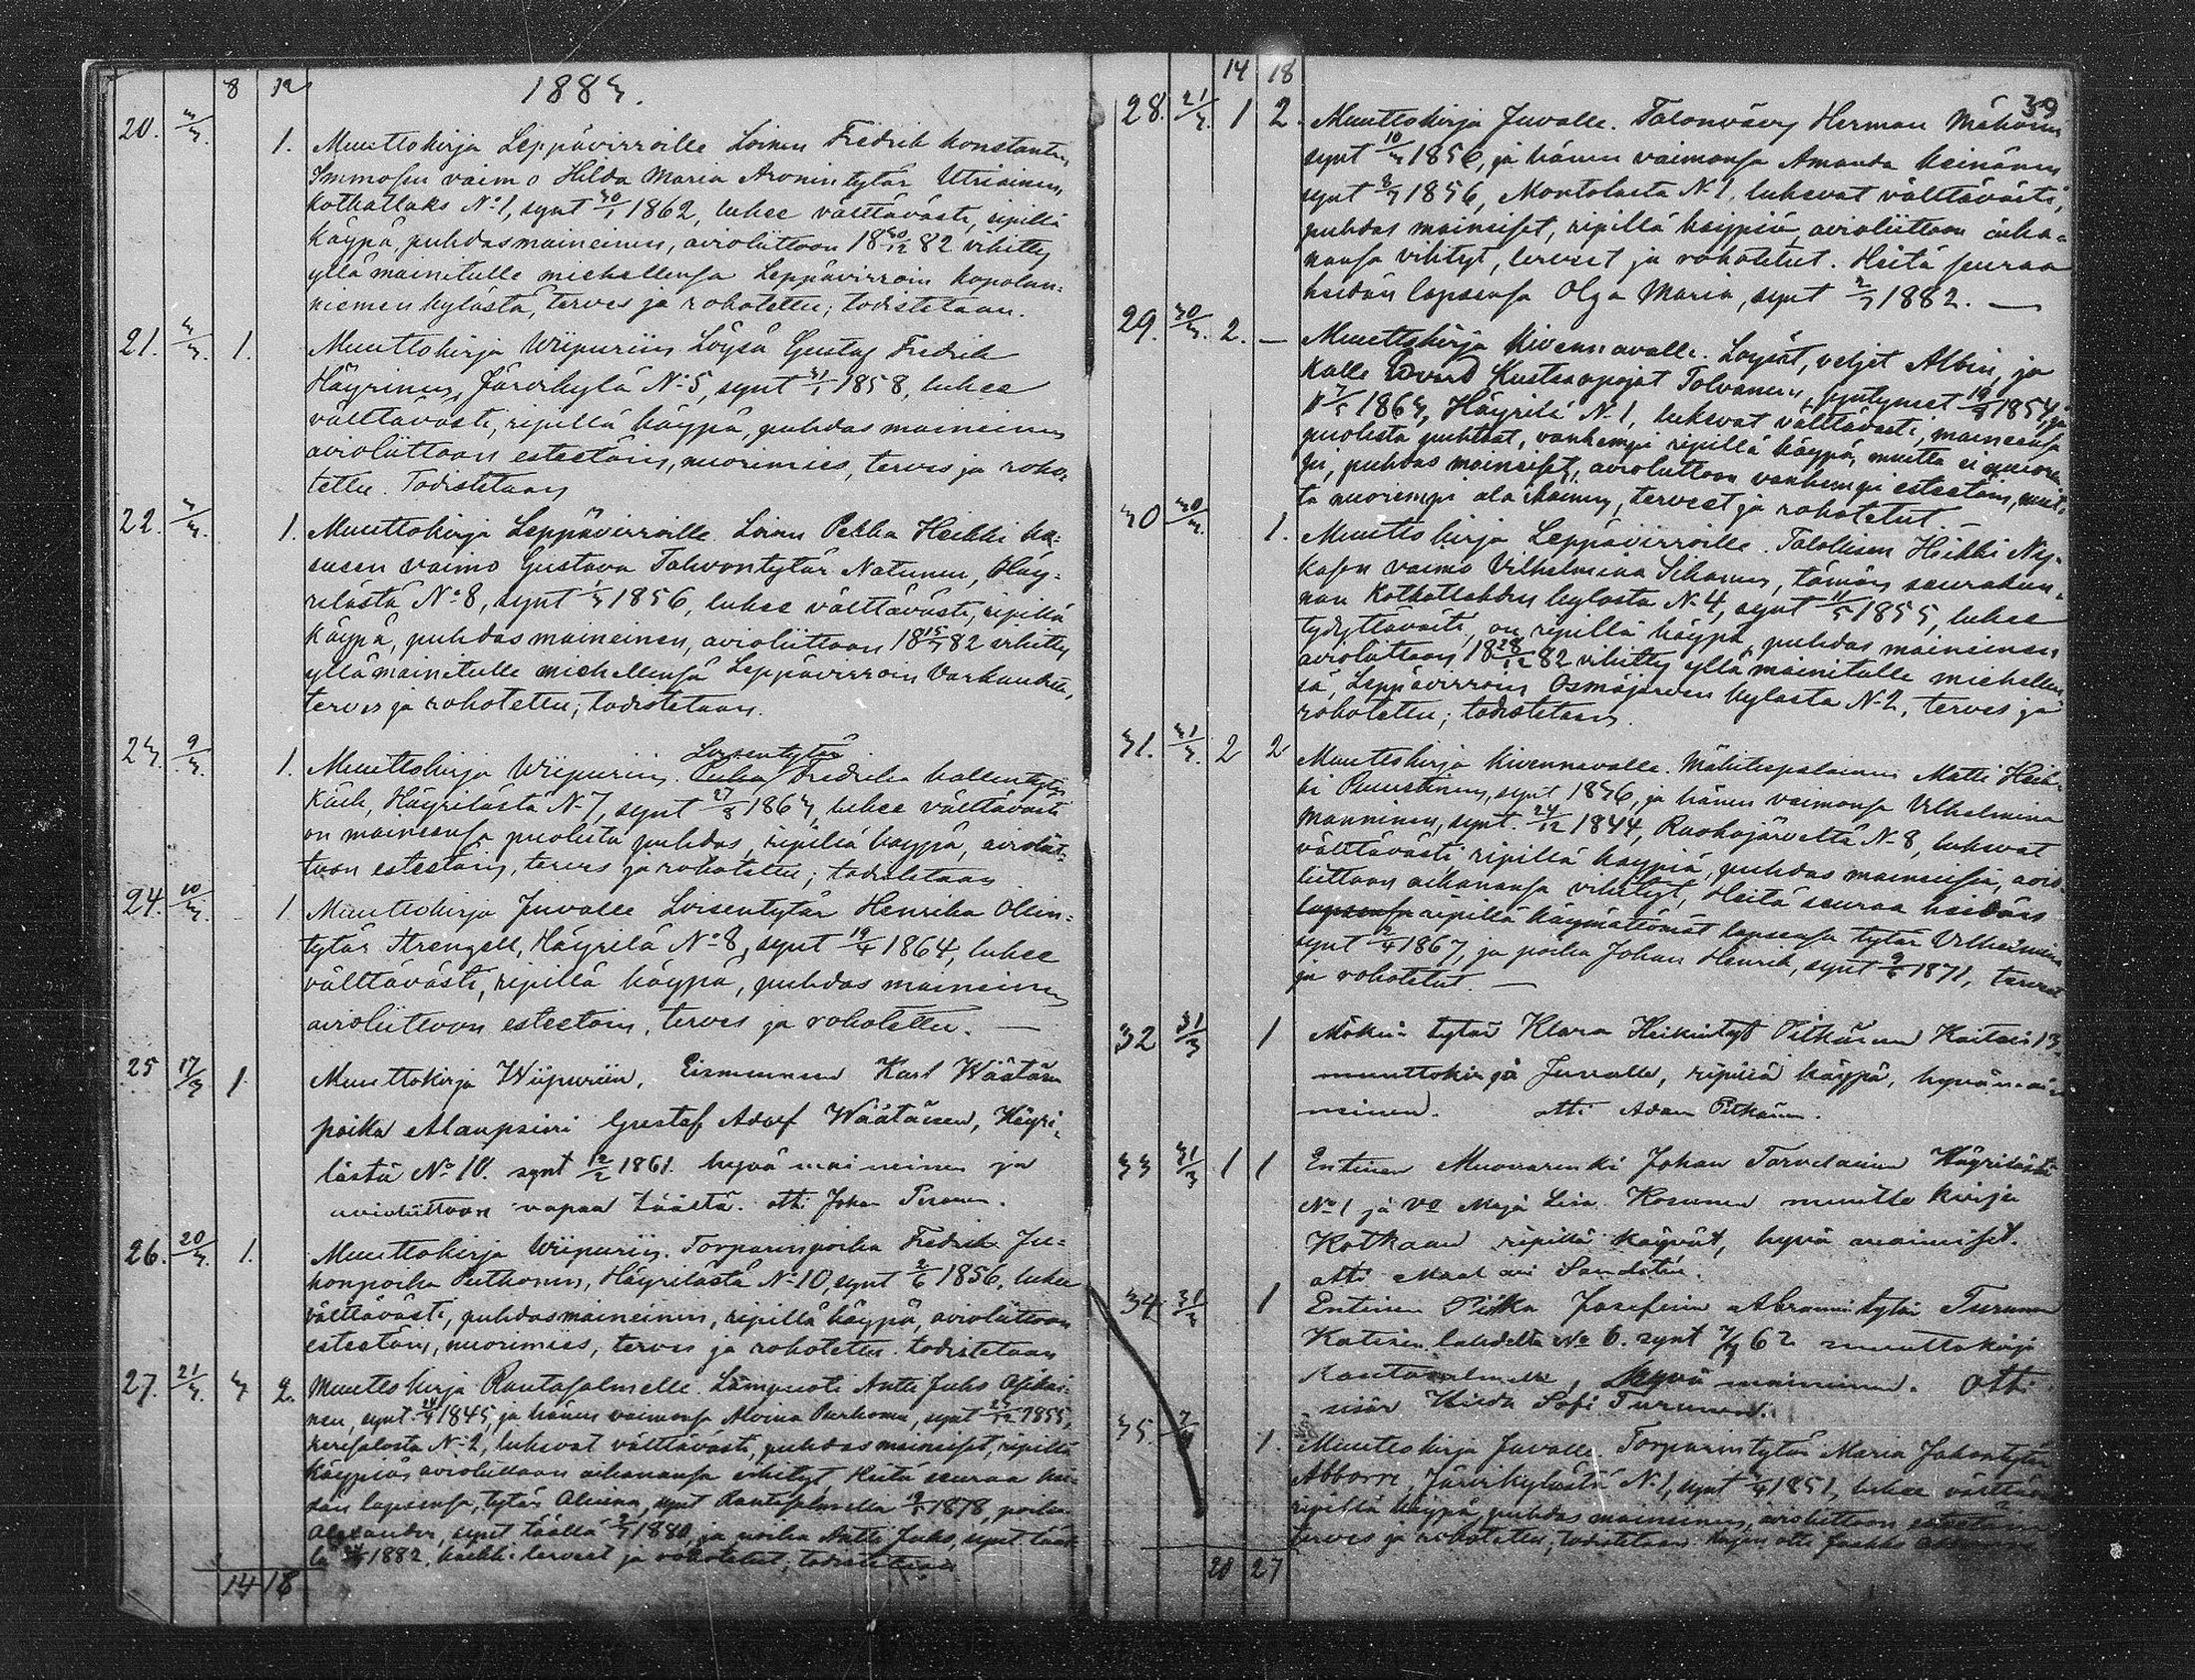 8 12 1883.
20. 3/3. 1. Muuttokirja Leppävirroille Loinen Fredrik Konstantin
Immosen vaimo Hilda Maria Aronintytär Utriainen,
Kotkatlaks No 1, synt 30/1 1862, lukee välttävästi, ripillä
käypä, puhdasmaineinen, avioliittoon 18 30/12 82 vihitty
yllä mainitulle miehellensä Leppävirroin Kopolan-
niemen kylästä, terves ja rokotettu; todistetaan.
21. 3/3. 1. Muuttokirja Wiipuriin Löysä Gustaf Fredrik
Häyrinen, Järvikylä No 5, synt 31/1 1858, lukee
välttävästi, ripillä käypä, puhdas maineinen
avioliittoon esteetöin, nuorimies, terves ja roko-
tettu. Todistetaan
22. 3/3. 1. Muuttokirja Leppävirroille. Loinen Pekka Heikki Ka-
susen vaimo Gustava Tahvontytär Natunen, Häy-
rilästä No 8, synt 1/3 1856, lukee välttävästi, ripillä
käypä, puhdas maineinen, avioliittoon 18 82 vihitty
yllä mainitulle miehellensä Leppävirroin Varkaudess,
terves ja rokotettu; todistetaan.
23. 9/3. 1. Muuttokirja Wiipuriin. Loisentytär Fredrika Kallentytär
Käck, Häyrilästä No 7, synt 27/8 1863, lukee välttävästi
on maineensa puolesta puhdas, ripillä käypä, avioliit-
toon esteetöin, terves ja rokotettu; todistetaan
24. 10/3. 1 Muuttokirja Juvalle Loisentytär Henrika Ollin-
tytär Strengell, Häyrilä No 8, synt 19/4 1864, lukee
välttävästi, ripillä käypä, puhdas maineinen
avioliittoon esteetöin, terves ja rokotettu. —
25 17/3 1. Muuttokirja Wiipuriin, Karl Väätäsen
poika Alaupsiori Gustaf Adolf Väätäisen, Häyri-
lästä No 10. synt 12/2 1861. hyvä maineinen ja
avioliittoon vapaa täältä. otti Johan Turunen.
26. 20/3. 1. Muuttokirja Wiipuriin. Torparinpoika Fredrik Ju-
honpoika Puthonen, Häyrilästä No 10, synt 2/6 1856, lukee
välttävästi, puhdasmaineinen, ripillä käypä, avioliittoon
esteetöin, nuorimies, terves ja rokotettu. todistetaan
27. 21/3. 3 2. Muuttokirja Rantasalmelle. Lampuoti Antti Juho Asikai-
nen, synt 1845, ja hänen vaimonsa Alvina Purhonen, synt 1855,
Kerisalosta No 2, lukevat välttävästi, puhdas maineiset, ripillä
käypiä, avioliittoon aikanansa vihityt, Heitä seuraa hei-
dän lapsensa, tytär Alvina, synt Rantasalmella 1878, poika
Alexander, synt täällä 1880, ja poika Antti Juho, synt tääl-
lä 1882. kaikki terveet ja rokotetut; todistetaan
14 18
14 18
39
28. 21/3. 1 2. Muuttokirja Juvalle. Talonväv Herman Mähönen
synt 10/3 1856, ja hänen vaimonsa Amanda Keinänen
synt 8/7 1856, Montolasta No 1, lukevat välttävästi,
puhdas maineiset, ripillä käypiä, avioliittoon aika-
nansa vihityt, terveet ja rokotetut. Heitä seuraa
heidän lapsensa Olga Maria, synt 2/7 1882. —
29. 30/3. 2. — Muuttokirja Kivennavalle. Loysät, veljet Albin, ja
Kalle Edvard Kustaanpojat Tolvanen, syntyneet 19/9 1854, ja
1863, Häyrilä No 1, lukevat välttävästi, maineensa
puolesta puhtaat, vanhempi ripillä käypä, mutta ei nuorem-
pi, puhdas maineiset, avioliittoon vanhempi esteetöin, mut-
ta nuorempi ala ikäinen, terveet ja rokotetut. —
30 30/3. 1. Muuttokirja Leppävirroille. Talollisen Heikki Ny-
käsen vaimo Vilhelmina Sihvonen, tämän seurakun-
nan Kotkatlahden kylästä No 4, synt 11/5 1855, lukee
tyydyttävästi, on ripillä käypä, puhdas maineinen
avioliittoon 18 28/12 82 vihitty yllä mainitulle miehellen-
sä, Leppävirroin Osmajärven kylästä No 2, terves ja
rokotettu; todistetaan.
31. 31/3. 2 2 Muuttokirja Kivennavalle. Mäkitupalainen Matti Heik-
ki Puustinen, synt 1836, ja hänen vaimonsa Vilhelmina
Manninen, synt. 24/12 1844, Ruokojärveltä No 8, lukevat
välttävästi, ripillä käypiä, puhdas maineisia, avio-
liittoon aikanansa vihityt, Heitä seuraa heidän
lapsensa ripillä käymättömät lapsensa tytär Vilhelmina
synt 2/4 1867, ja poika Johan Henrik, synt 9/6 1871, terveet
ja rokotetut. —
32 31/3 1 Mökin tytär Klara Heikintyt Pitkänen 13
muuttokirja Juvalle, ripillä käypä, hyvämai-
neinen. otti Adam Pitkänen.
33 31/3 1 1 Entinen Muonarenki Johan Tarvelainen Häyrilästä
No 1 ja vo Maja Lisa Kosunen muutto kirja
Kotkaan ripillä käyvät, hyvä maineiset.
otti
34 31/3 1 Entinen Piika Josefina Abramin tytär Turunen
lahdelta No 6. synt 62 muuttokirja
Rantasalmelle, hyvä maineinen. Otti
sisar Hilda Sofi Turunen.
35. 1. Muuttokirja Juvalle. Torparintytär Maria Johantytär
Abborre, Järvikylästä No 1, synt 1851, lukee välttäv
ripillä käypä, puhdas maineinen, avioliittoon esteetöin
terves ja rokotettu; todistetaan. Kirjan otti Jaakko
20 27